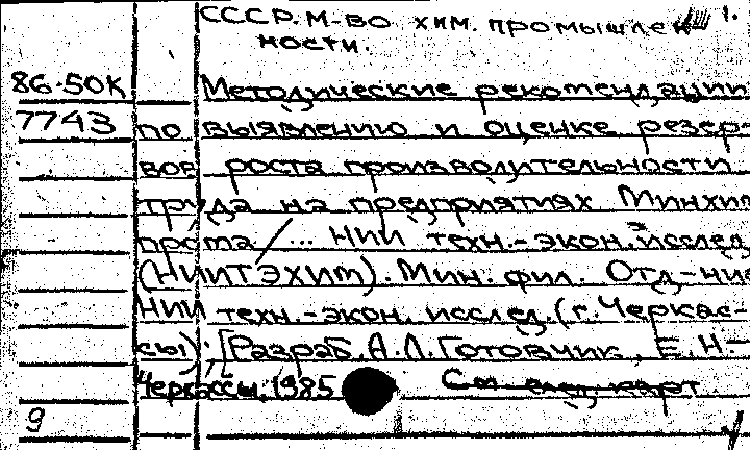 СССР. М-во хим. промышлен- 1.
ности.
86-50К Методические рекомендации
7743 по выявлению и оценке резер-
вов роста производительности
труда на предприятиях Минхим
прома / ... НИИ техн.-экон. исслед.
(НИИТЭХИМ). Мин. фил. Отд-ние
НИИ техн.-экон. исслед. (г. Черкас-
сы); [Разраб. А. Л. Готовчик, Е. Н-
Черкассы, 1985 См след карт
9